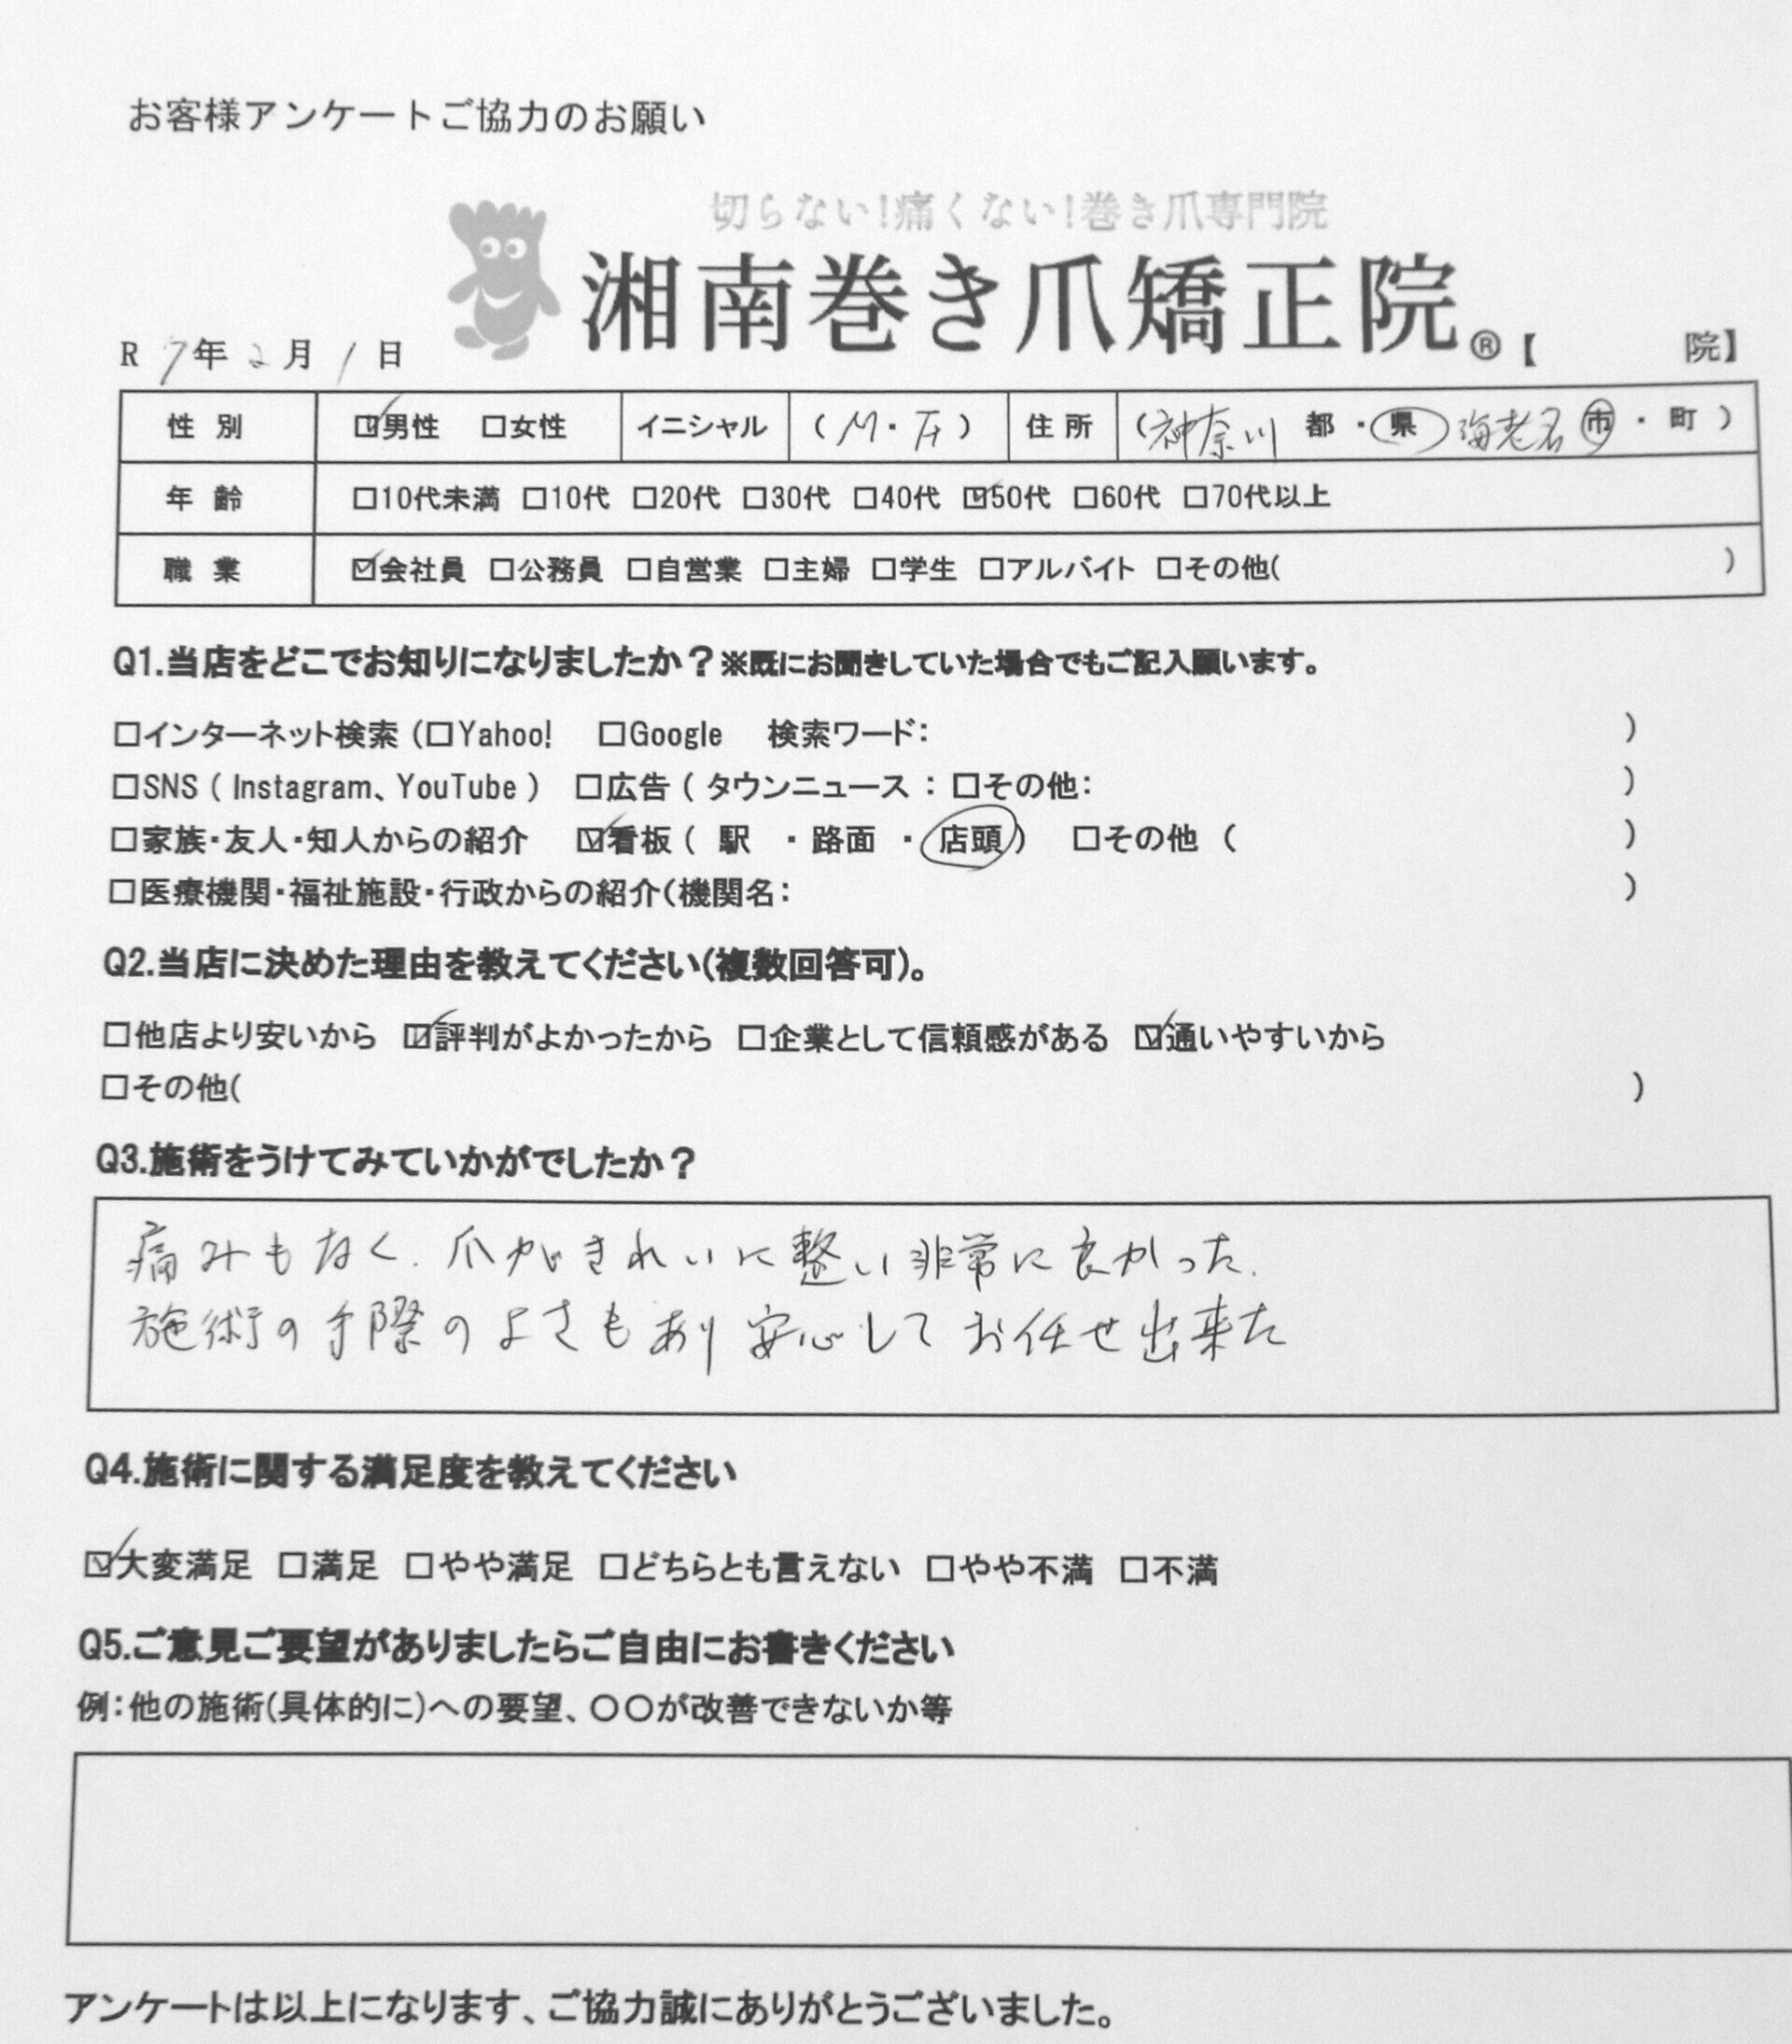 お客様アンケートご協力のお願い
切らない!痛くない!巻き爪専門院
湘南巻き爪矯正院® 【 院】
R 7年 2月 1日
性別 ☑男性 □女性 イニシャル (M・) 住所 (神奈川 都・県 海老名 市・町)
年齢 □10代未満 □10代 □20代 □30代 □40代 ☑50代 □60代 □70代以上
職業 ☑会社員 □公務員 □自営業 □主婦 □学生 □アルバイト □その他( )
Q1.当店をどこでお知りになりましたか?※既にお聞きしていた場合でもご記入願います。
□インターネット検索 (□Yahoo! □Google 検索ワード: )
□SNS ( Instagram、YouTube ) □広告 ( タウンニュース : □その他: )
□家族・友人・知人からの紹介 ☑看板 ( 駅 ・ 路面 ・ 店頭 ) □その他 ( )
□医療機関・福祉施設・行政からの紹介(機関名: )
Q2.当店に決めた理由を教えてください(複数回答可)。
□他店より安いから ☑評判がよかったから □企業として信頼感がある ☑通いやすいから
□その他( )
Q3.施術をうけてみていかがでしたか?
痛みもなく.爪がきれいに整い非常に良かった.
施術の手際のよさもあり安心してお任せ出来た
Q4.施術に関する満足度を教えてください
☑大変満足 □満足 □やや満足 □どちらとも言えない □やや不満 □不満
Q5.ご意見ご要望がありましたらご自由にお書きください
例:他の施術(具体的に)への要望、〇〇が改善できないか等
アンケートは以上になります、ご協力誠にありがとうございました。